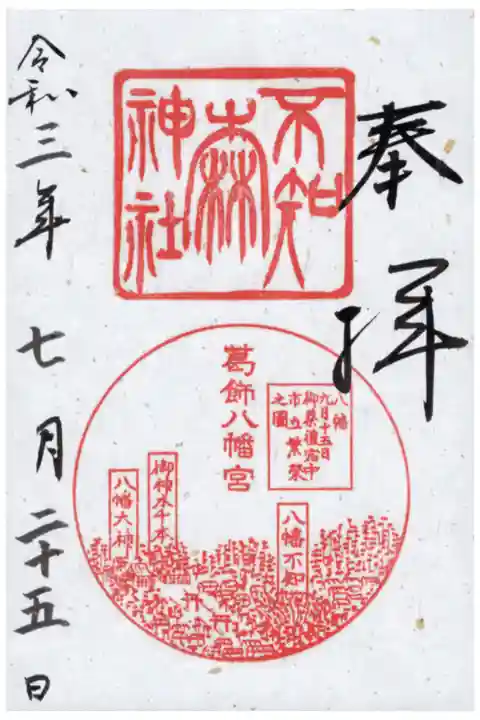 奉拝
不知
森
神社
葛飾八幡宮
八幡
九月十五日
市立繁栄
之圖
八幡不知
八幡大神
令和三年七月二十五日